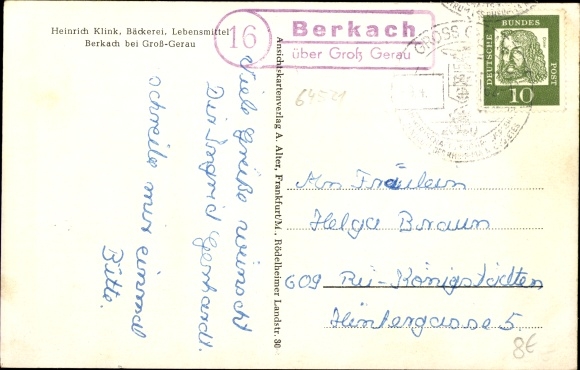 Heinrich Klink, Bäckerei, Lebensmittel
Berkach bei Groß-Gerau
16
Berkach
über Groß Gerau
GROSS G
DEUTSCHE BUNDES POST
10
64521
Viele Grüße wünscht
Dir Ingrid Gerhardt.
Schreibe mir einmal
Bitte.
Ansichtskartenverlag A. Alter, Frankfurt/M., Rödelheimer Landstr. 30
An Fräulein
Helga Braun
609 Rü-Königstädten
Hintergasse 5.
8€